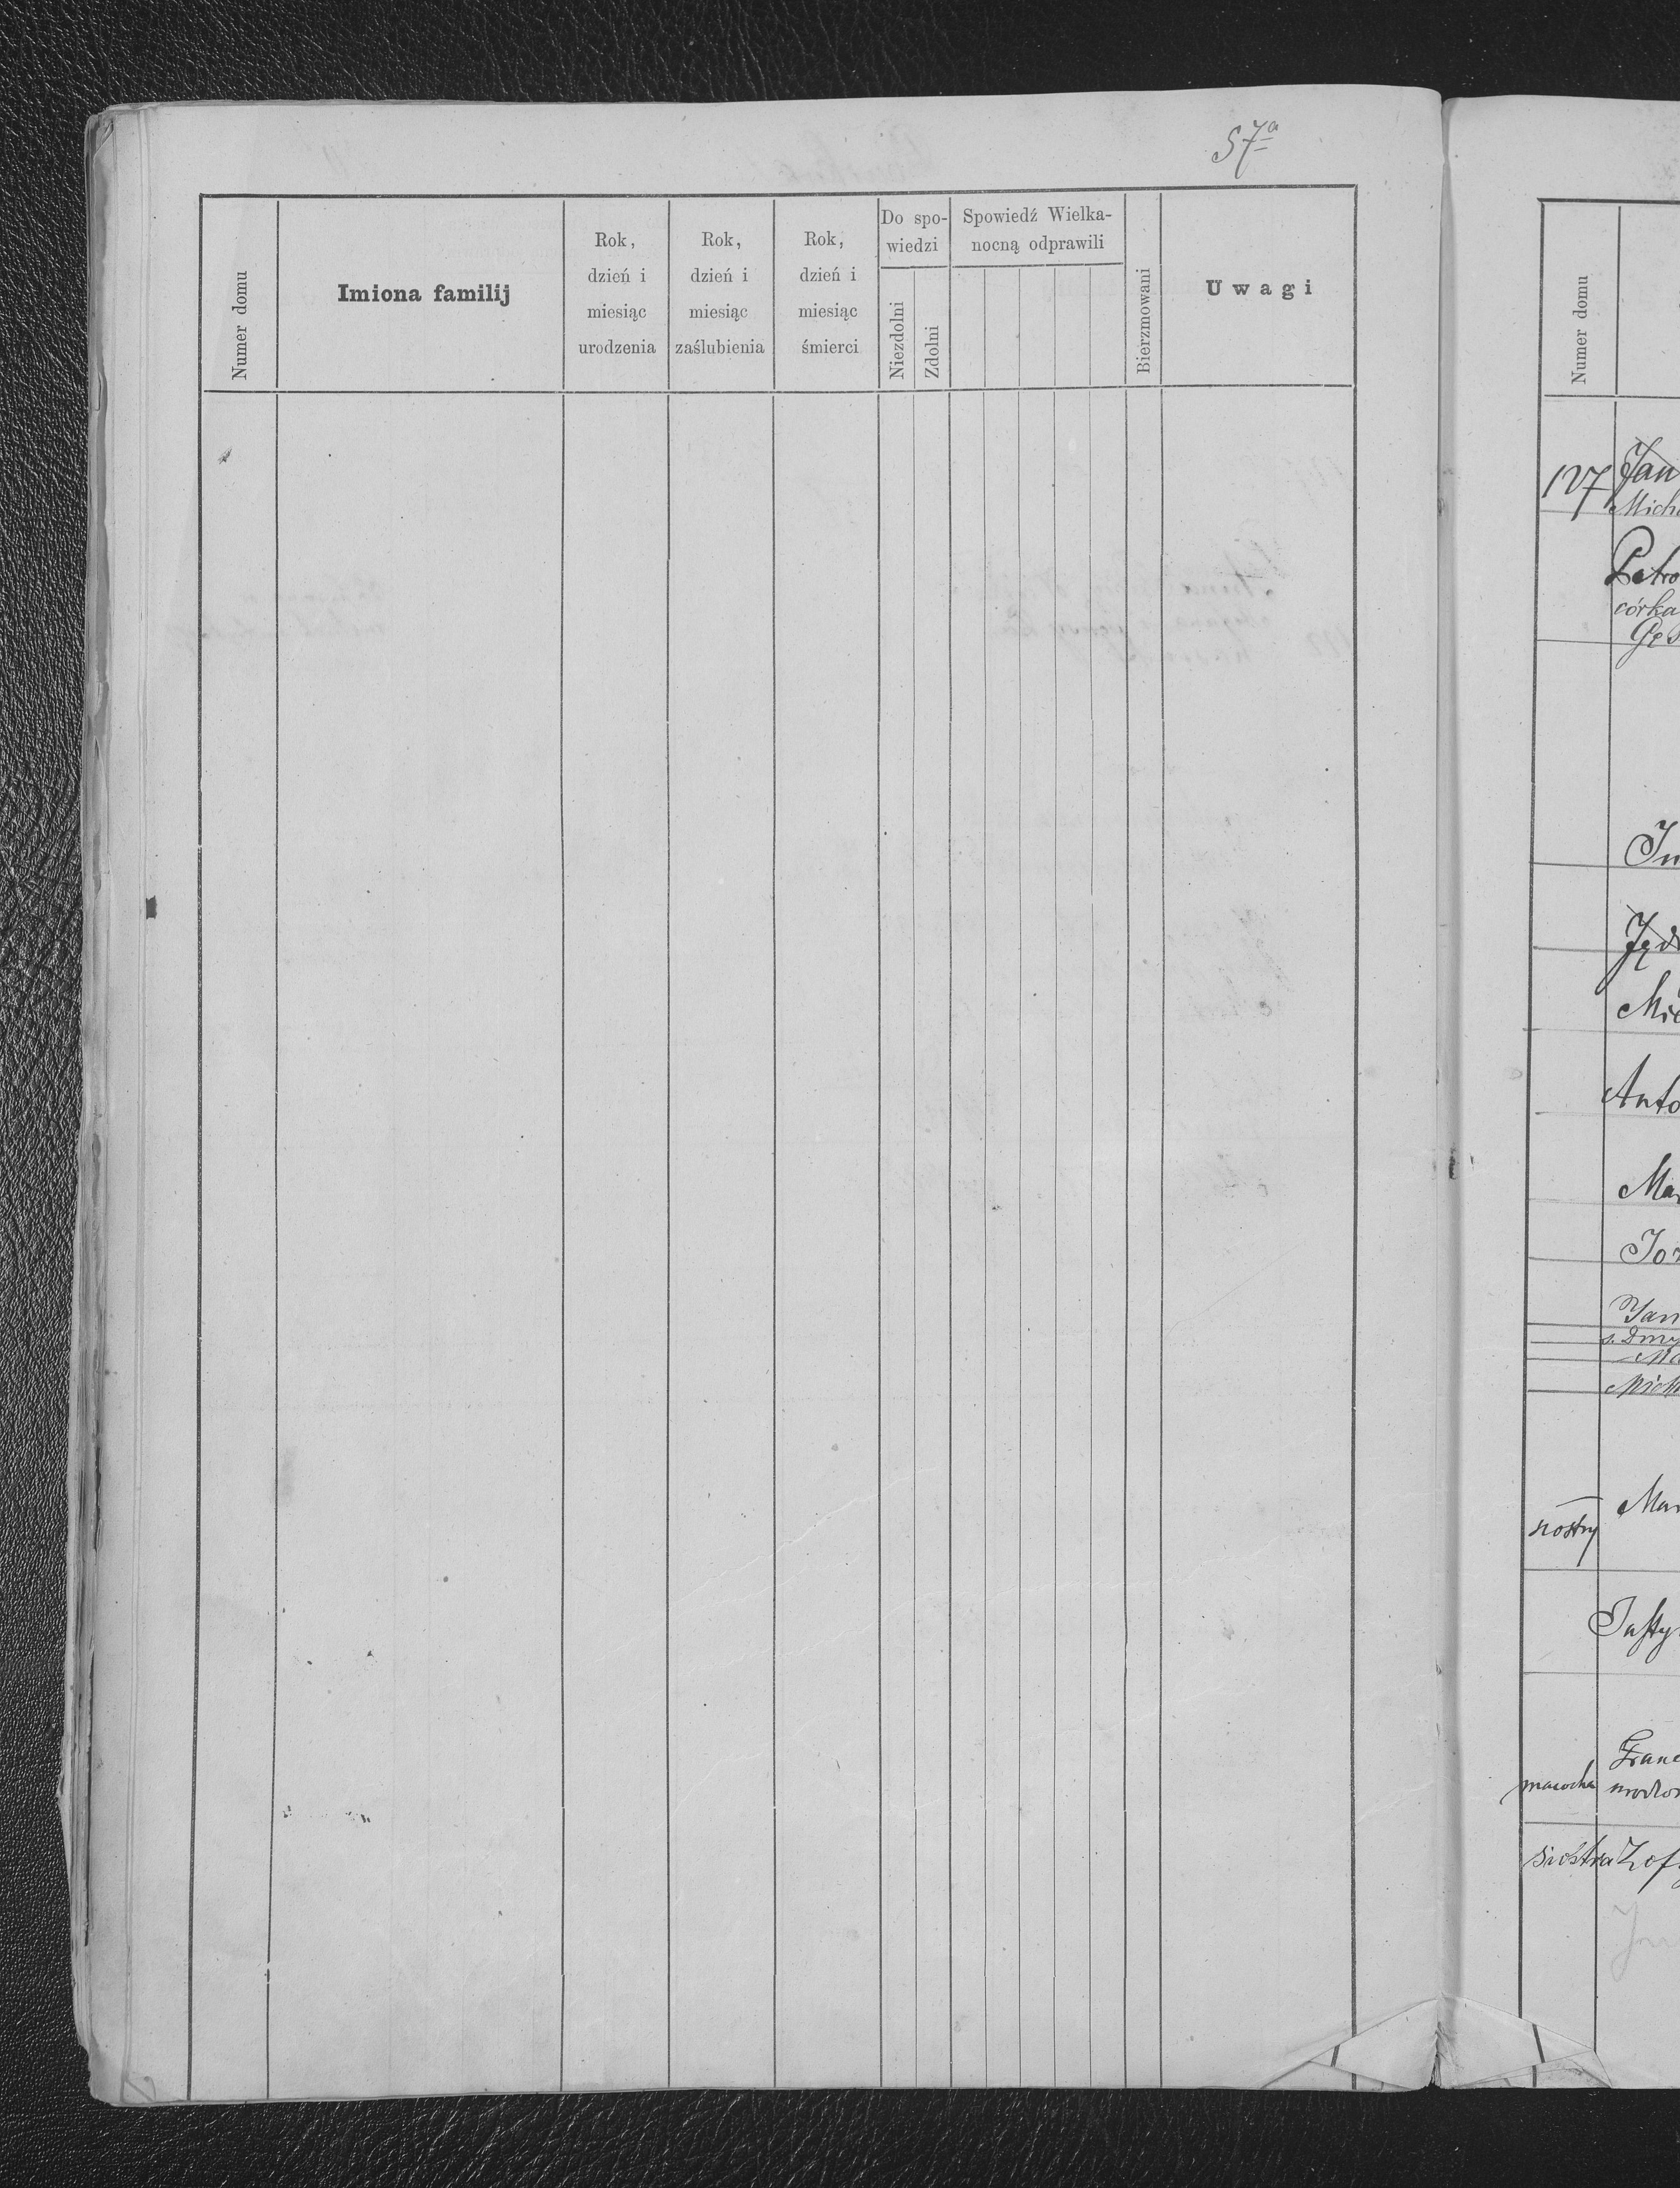 57a
Numer domu
Imiona familij
Rok,
dzień i
miesiąc
urodzenia
Rok,
dzień i
miesiąc
zaślubienia
Rok,
dzień i
miesiąc
śmierci
Do spo-
wiedzi
Niezdolni
Zdolni
Spowiedź Wielka-
nocną odprawili
Bierzmowani
Uwagi
Numer domu
127 Jan
Micha
Petro
córka
Mic
Anto
Mar
Joz
Jan
Mar
siostry
Franc
macocha
siostra Zof